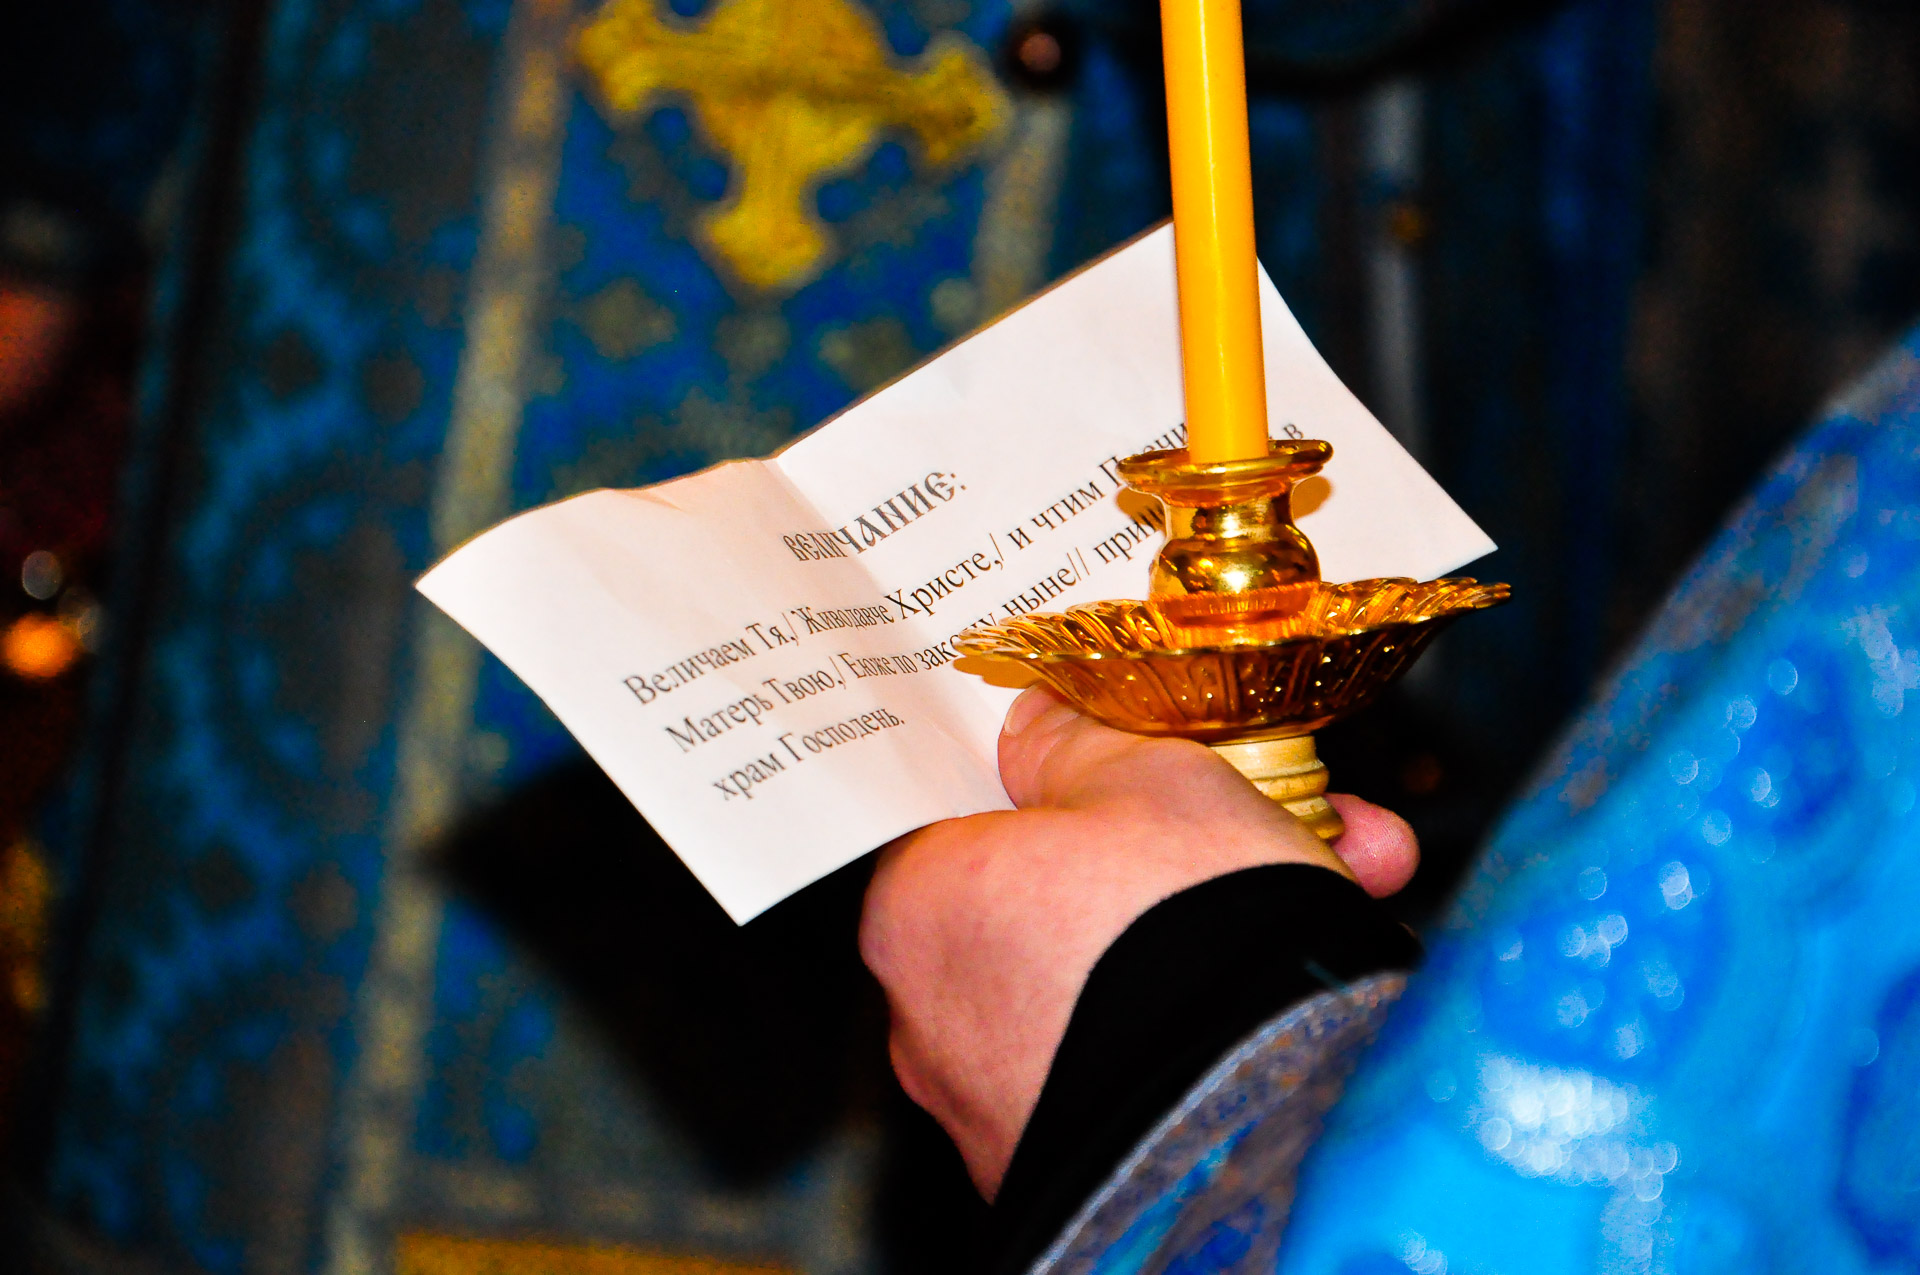 величание:
Величаем Тя,/ Живодавче Христе,/ и чтим в
Матерь Твою,/ Еюже по закону ныне//
храм Господень.